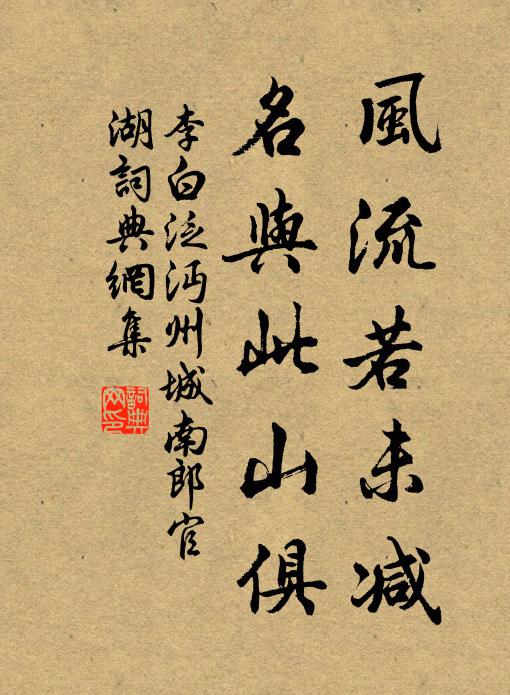 風流若未减
名與此山俱
李白泛沔州城南郎官
湖詞典網集
詞典
网印